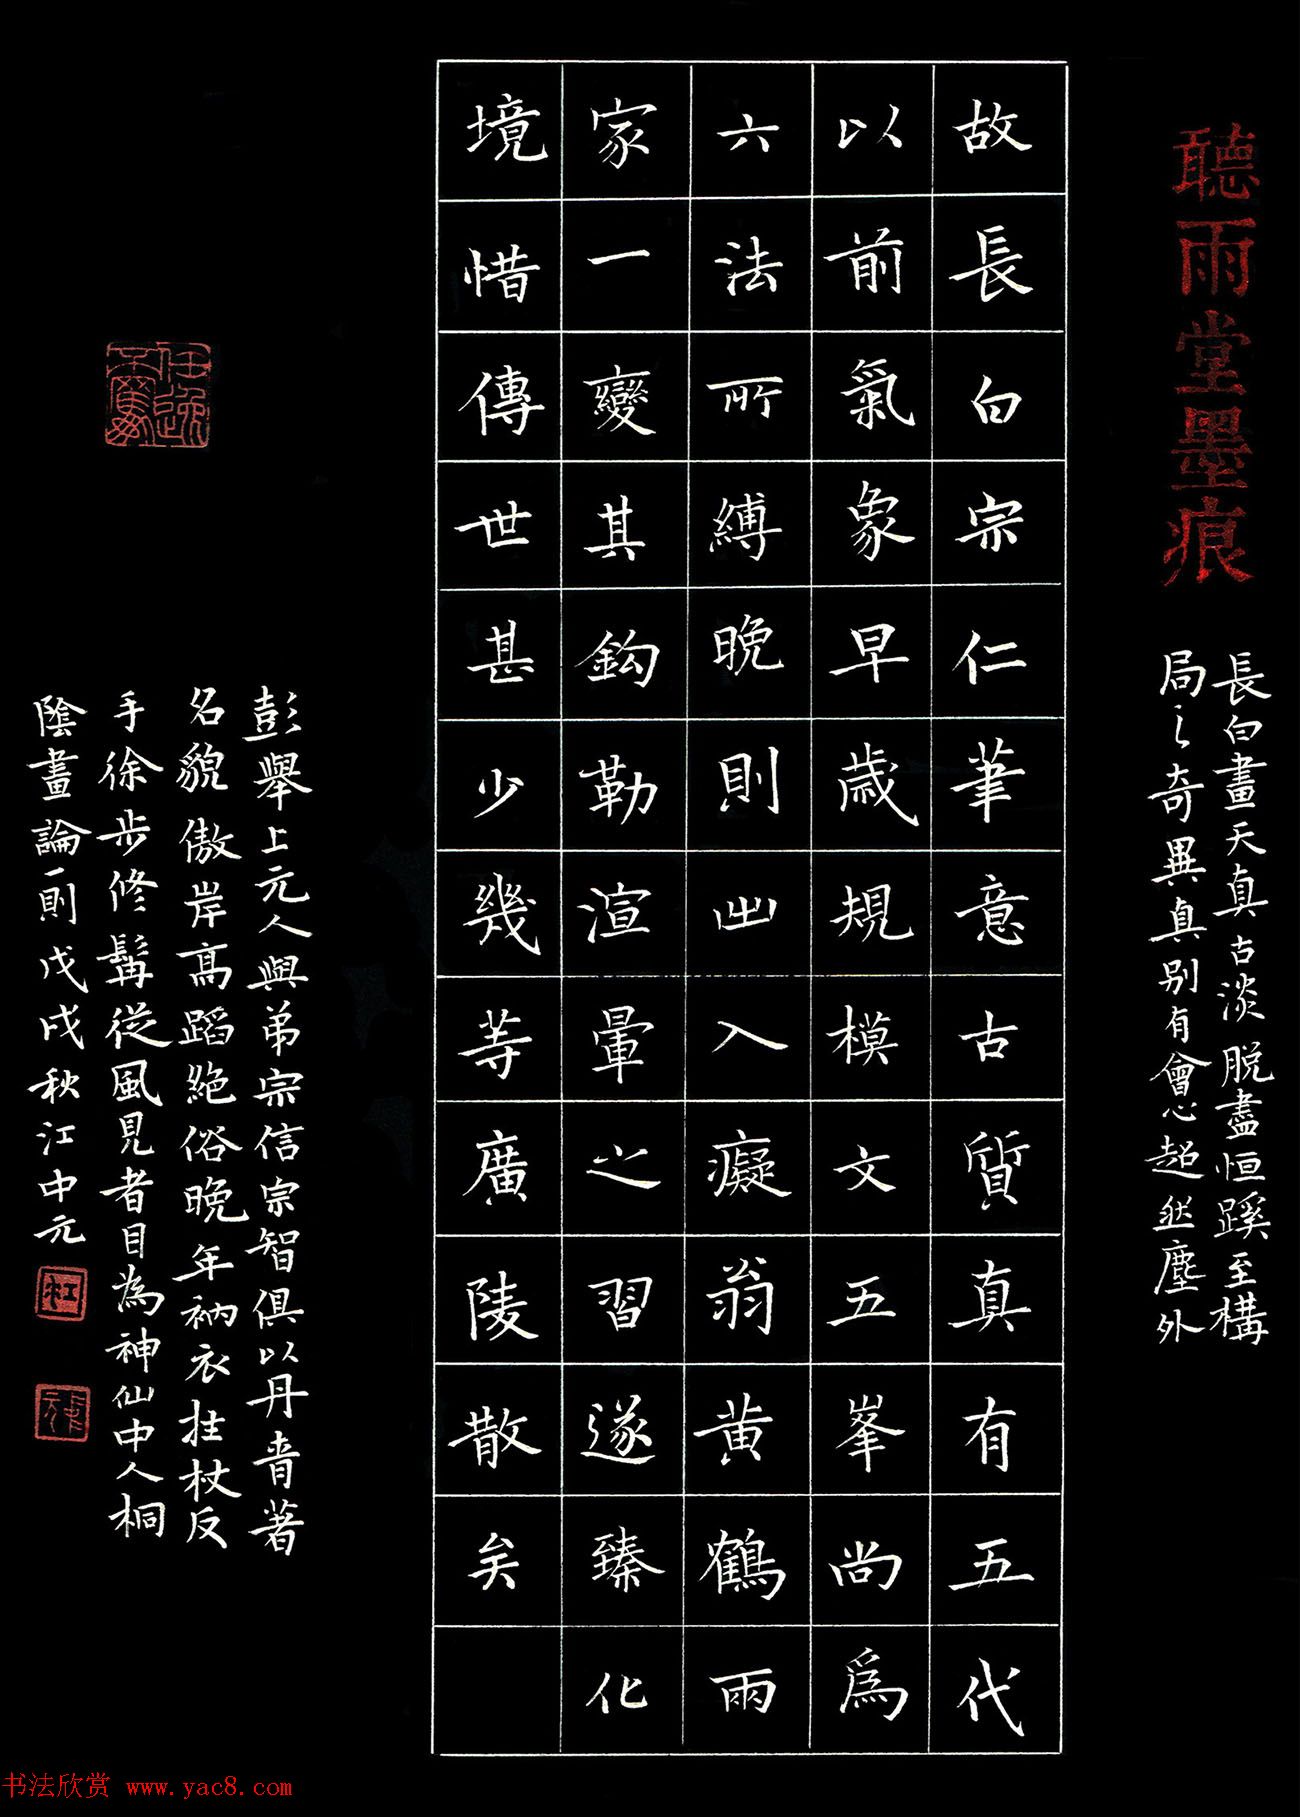 聽雨堂墨痕
長白畫天真古淡脫盡恒蹊至構
局之奇異真別有會心超然塵外
故長白宗仁筆意古質真有五代
以前氣象早歲規模文五峯尚為
六法所縛晚則出入癡翁黃鶴兩
家一變其鈎勒渲暈之習遂臻化
境惜傳世甚少幾等廣陵散矣
彭舉上元人與弟宗信宗智俱以丹青著
名貌傲岸高蹈絕俗晚年衲衣拄杖反
手徐步修髯從風見者目為神仙中人桐
陰畫論一則戊戌秋江中元
書法欣赏 www.yac8.com